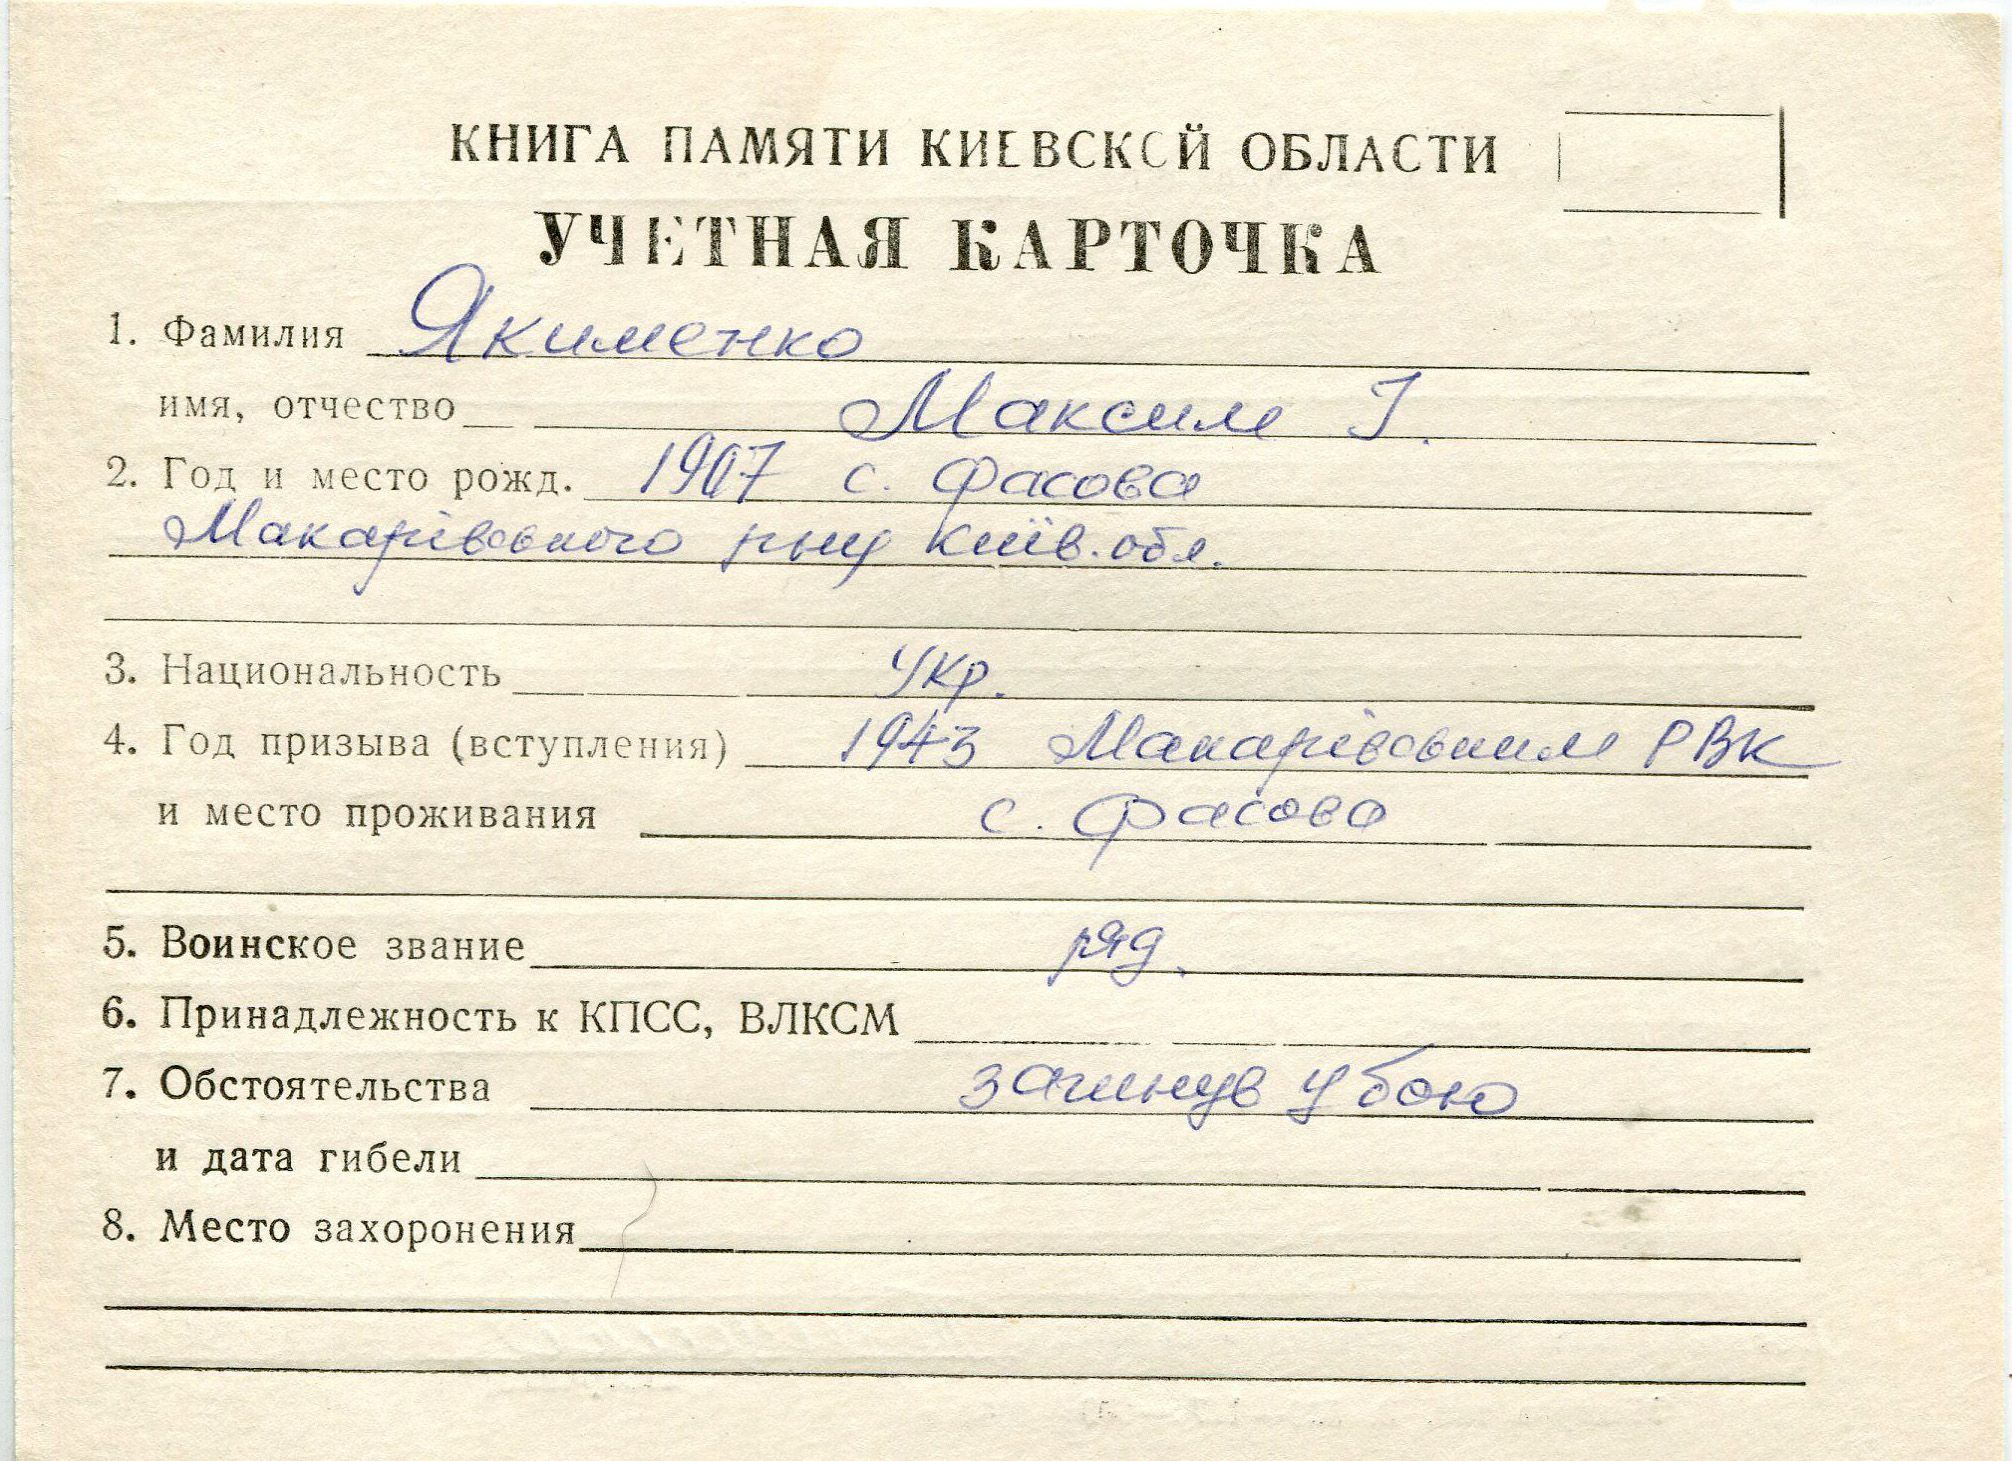 КНИГА ПАМЯТИ КИЕВСКОЙ ОБЛАСТИ
УЧЕТНАЯ КАРТОЧКА
1. Фамилия Якименко
имя, отчество Максим І.
2. Год и место рожд. 1907 с. Фасова
Макарівського р-ну Київ. обл.
3. Национальность укр.
4. Год призыва (вступления) 1943 Макарівським РВК
и место проживания с. Фасова
5. Воинское звание ряд.
6. Принадлежность к КПСС, ВЛКСМ
7. Обстоятельства загинув у бою
и дата гибели
8. Место захоронения